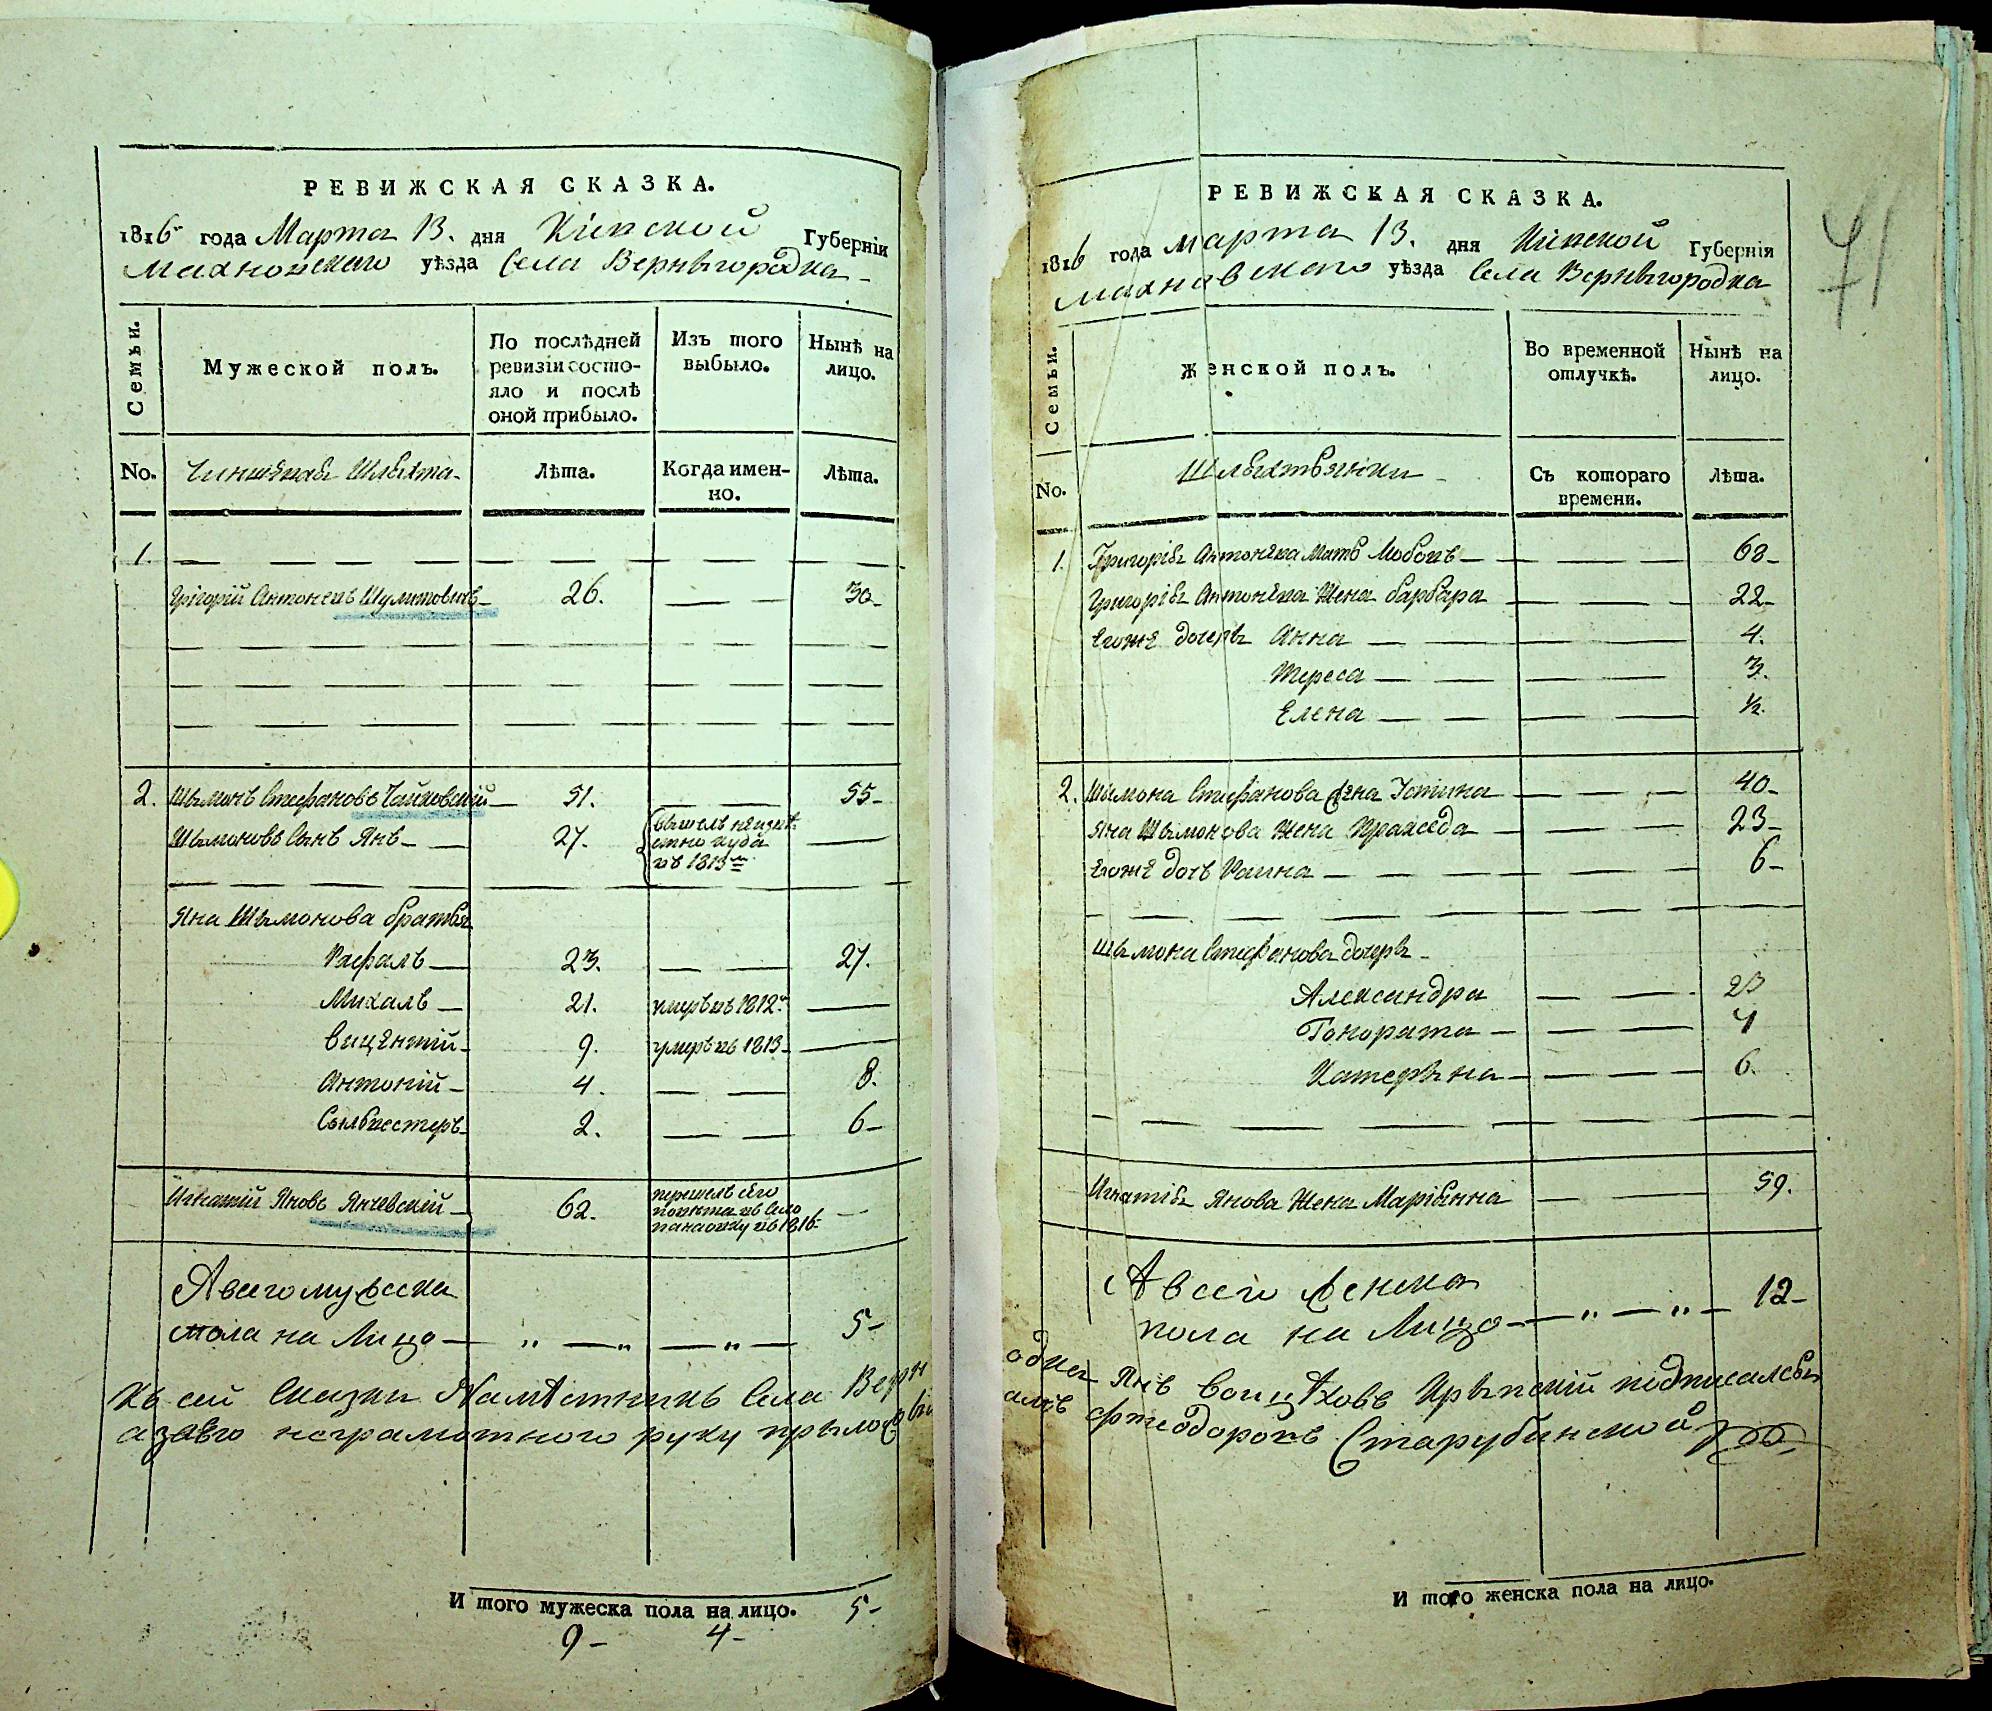 РЕВИЖСКАЯ СКАЗКА.
1816 года Марта 13. дня Кіевской Губерніи
Махновского уѣзда Села Верныгородка
Семьи.
Мужеской полъ.
По послѣдней ревизіи состо-
яло и послѣ
оной прибыло.
Изъ того
выбыло.
Нынѣ на
лицо.
No.
Шляхта
Лѣта.
Когда имен-
но.
Лѣта.
1.
Григорій Антоневъ Шулятовичъ 26. 30
2. Шымонъ Стефановъ Чайковскій 51. 55
Шымоновъ Сынъ Янъ 27. вышелъ неизве
стно куда
въ 1813м
Яна Шымонова братья
Рафалъ 23. 27.
Михалъ 21. умеръ въ 1812
Вицентій 9. умеръ въ 1813
Антоній 4. 8.
Сылвестеръ 2. 6
Игнатій Яновъ Янчевскій 62. перешелъ
въ Село
въ 1816
А всего мужеска
пола на Лицо „ „ „ 5
Къ сей Сказки Намѣстникъ Села Верн
неграмотного руку прылож
И того мужеска пола на лицо. 5
9 4
71
РЕВИЖСКАЯ СКАЗКА.
1816 года марта 13. дня Кіевской Губерніи
Махновского уѣзда Села Верныгородка
Семьи.
Женской полъ.
Во временной
отлучкѣ.
Нынѣ на
лицо.
No.
Шляхтянки
Съ котораго
времени.
Лѣта.
1. Григорія Антонева Мать 68
Григорія Антонева Жена барбара 22
Егоже дочеры Анна 4.
Тереса 3.
Елена ½.
2. Шымона Стефанова Жена Устина 40
Яна Шымонова Жена Праксeда 23
Егоже дочь 6
Шымона Стефанова дочеры
Александра 23
Гонората
Катерына 6.
Игнатія Янова Жена Маріянна 59.
А всего Женска
пола на Лицо „ „ 12
Янъ подписалсья
Старубинской
И того женска пола на лицо.